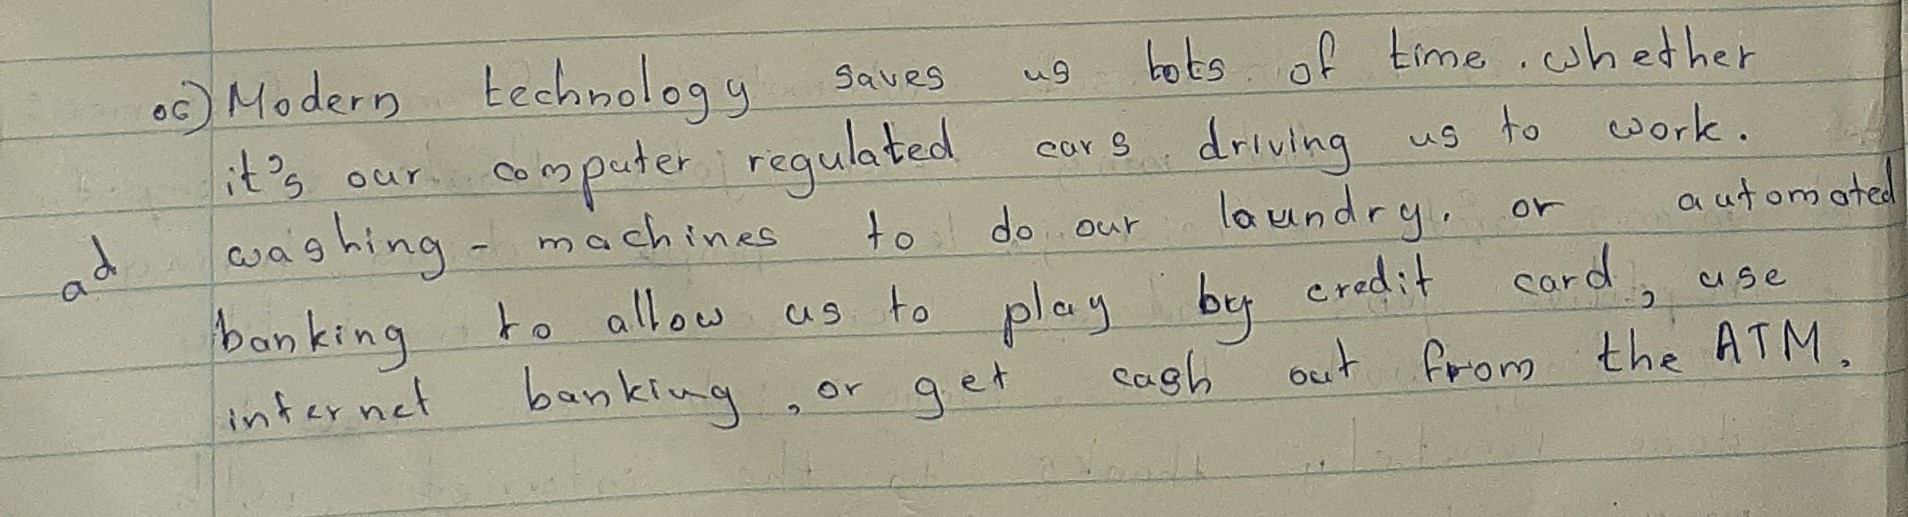 06) Modern technology saves us lots of time. whether
it's our computer regulated cars driving us to work.
washing - machines to do our laundry. or automated
ad
banking to allow us to play by credit card, use
internet banking, or get cash out from the ATM.